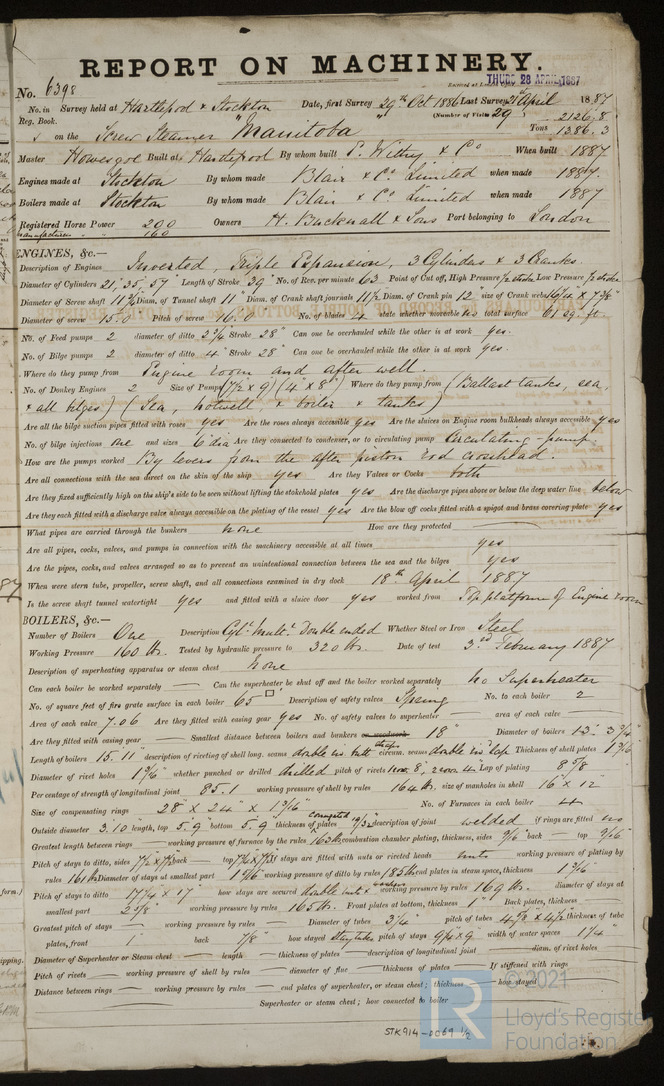 REPORT ON MACHINERY.
No. 6398
THURS 28 APRIL 1887
No. in Survey held at Hartlepool & Stockton Date, first Survey 29th Oct 1886 Last Survey 21st April 1887
Reg. Book. (Number of Visits 29)
on the Screw Steamer "Manitoba" Tons 2126.8 1386.3
Master Built at Hartlepool By whom built T. Withy & Co When built 1887
Engines made at Stockton By whom made Blair & Co. Limited when made 1887
Boilers made at Stockton By whom made Blair & Co Limited when made 1887
Registered Horse Power 200 Owners H. Bucknall & Sons Port belonging to London
ENGINES, &c.—
Description of Engines Inverted, Triple Expansion, 3 Cylinders & 3 Cranks
Diameter of Cylinders 21", 35", 57" Length of Stroke 39" No. of Rev. per minute 63 Point of Cut off, High Pressure Low Pressure
Diameter of Screw shaft Diam. of Tunnel shaft 11" Diam. of Crank shaft journals 11 1/2 Diam. of Crank pin 12" size of Crank webs
Diameter of screw 15.0 Pitch of screw No. of blades 4 state whether moveable no total surface 61 sq. ft.
No. of Feed pumps 2 diameter of ditto 2 3/4 Stroke 28" Can one be overhauled while the other is at work yes.
No. of Bilge pumps 2 diameter of ditto 4" Stroke 28" Can one be overhauled while the other is at work yes.
Where do they pump from Engine room and after well.
No. of Donkey Engines 2 Size of Pumps (7 1/2 x 9) (4" x 8") Where do they pump from (Ballast tanks, sea,
& all bilges) (Sea, hotwell, & boiler & tanks)
Are all the bilge suction pipes fitted with roses yes Are the roses always accessible yes Are the sluices on Engine room bulkheads always accessible yes
No. of bilge injections one and sizes 6" dia Are they connected to condenser, or to circulating pump Circulating-pump
How are the pumps worked By levers from the after piston rod crosshead.
Are all connections with the sea direct on the skin of the ship yes Are they Valves or Cocks both
Are they fixed sufficiently high on the ship's side to be seen without lifting the stokehold plates yes Are the discharge pipes above or below the deep water line below
Are they each fitted with a discharge valve always accessible on the plating of the vessel yes Are the blow off cocks fitted with a spigot and brass covering plate yes
What pipes are carried through the bunkers none How are they protected —
Are all pipes, cocks, valves, and pumps in connection with the machinery accessible at all times yes
Are the pipes, cocks, and valves arranged so as to prevent an unintentional connection between the sea and the bilges yes
When were stern tube, propeller, screw shaft, and all connections examined in dry dock 18th April 1887
Is the screw shaft tunnel watertight yes and fitted with a sluice door yes worked from Top platform of Engine room
BOILERS, &c.—
Number of Boilers One Description Cyl: Mult: Double ended Whether Steel or Iron Steel
Working Pressure 160 lbs. Tested by hydraulic pressure to 320 lbs. Date of test 3rd February 1887
Description of superheating apparatus or steam chest none
Can each boiler be worked separately — Can the superheater be shut off and the boiler worked separately No Superheater
No. of square feet of fire grate surface in each boiler 65 Description of safety valves Spring No. to each boiler 2
Area of each valve 7.06 Are they fitted with easing gear yes No. of safety valves to superheater — area of each valve —
Are they fitted with easing gear — Smallest distance between boilers and bunkers or woodwork 18" Diameter of boilers 13'. 3 3/4"
Length of boilers 15'. 11" description of riveting of shell long. seams double riv butt straps circum. seams double riv lap Thickness of shell plates
Diameter of rivet holes 1 3/16 whether punched or drilled drilled pitch of rivets Lap of plating 8 5/8
Per centage of strength of longitudinal joint 85.1 working pressure of shell by rules 164 lbs. size of manholes in shell 16" x 12"
Size of compensating rings 28" x 24" x 1 3/16" No. of Furnaces in each boiler 4
Outside diameter 3.10 length, top 5'. 9" bottom 5. 9 thickness of plates corrugated 19/32 description of joint welded if rings are fitted no
Greatest length between rings — working pressure of furnace by the rules 163 lbs combustion chamber plating, thickness, sides 9/16" back — top 9/16
Pitch of stays to ditto, sides back — top If stays are fitted with nuts or riveted heads nuts working pressure of plating by
rules 161 lbs Diameter of stays at smallest part working pressure of ditto by rules 185 lbs end plates in steam space, thickness 1 3/16
Pitch of stays to ditto 17 1/4 x 17" how stays are secured double nuts & washers working pressure by rules 169 lbs. diameter of stays at
smallest part 2 5/8" working pressure by rules 165 lb. Front plates at bottom, thickness 1" Back plates, thickness —
Greatest pitch of stays — working pressure by rules — Diameter of tubes 3 1/4 pitch of tubes 4 5/8" x 4 1/2 thickness of tube
plates, front 1" back 7/8" how stayed stay tubes pitch of stays 9 1/4 x 9" width of water spaces 1 1/4"
Diameter of Superheater or Steam chest — length — thickness of plates — description of longitudinal joint — diam. of rivet holes —
Pitch of rivets — working pressure of shell by rules — diameter of flue — thickness of plates — If stiffened with rings —
Distance between rings — working pressure by rules — end plates of superheater, or steam chest; thickness — how stayed —
Superheater or steam chest; how connected to boiler —
STK914-0069 1/2
LR
© 2021
Lloyd's Register
Foundation